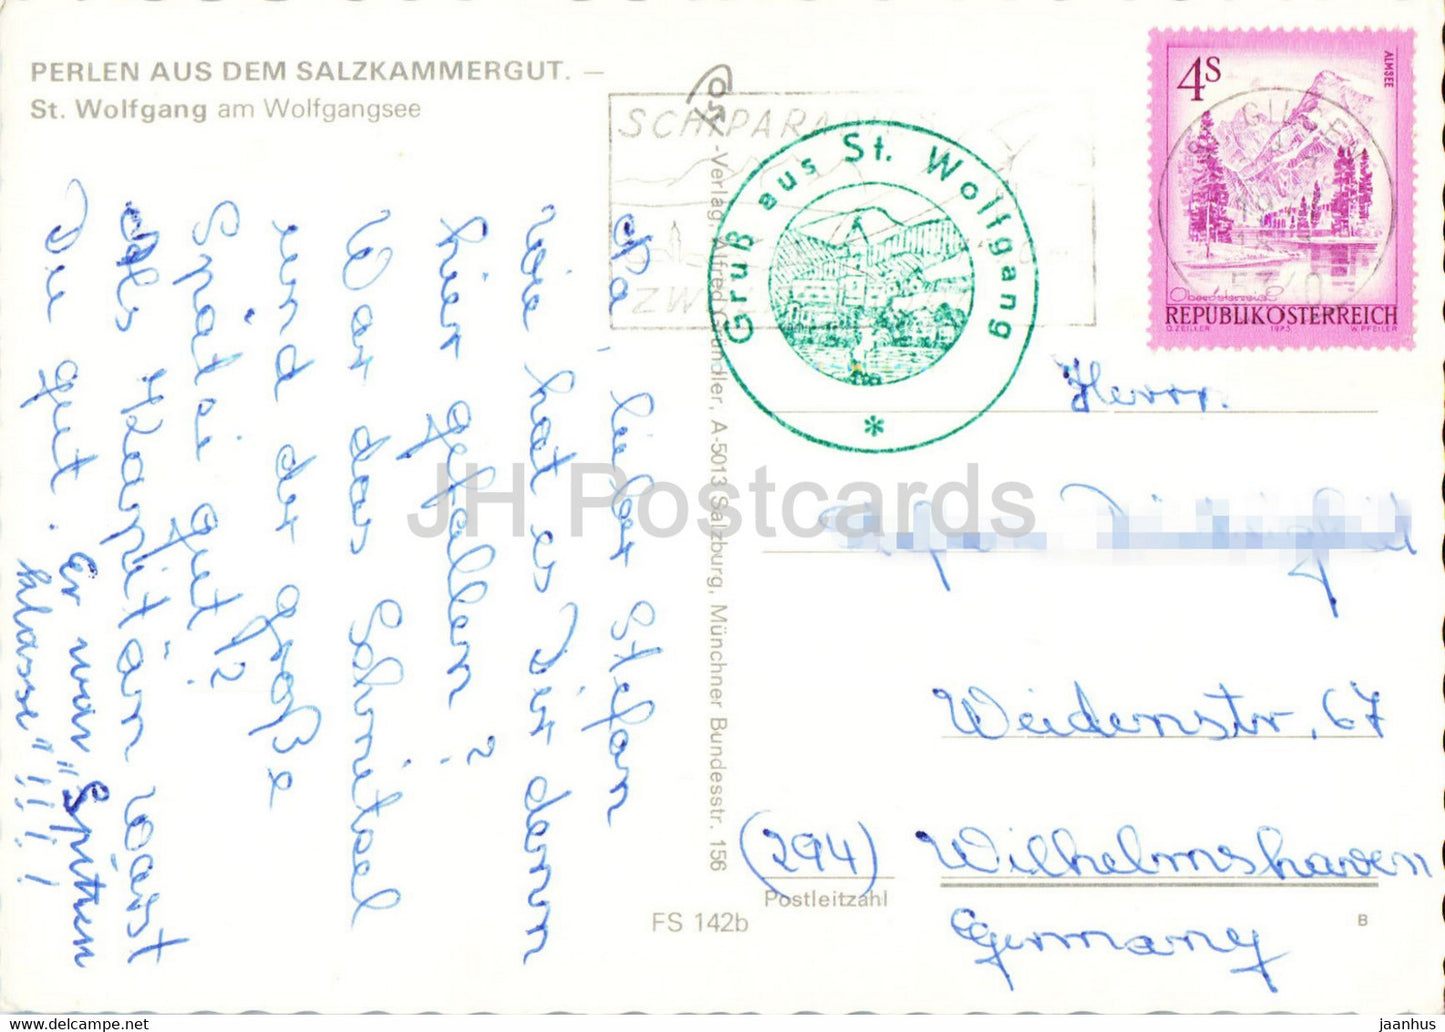 PERLEN AUS DEM SALZKAMMERGUT. —
St. Wolfgang am Wolfgangsee
Na, lieber Stefan
wie hat es Dir denn
hier gefallen?
War das Schnitzel
und der große
Spatzi gut?
Als Kapitän warst
Du gut. Er war "Spitzen
klasse"!!!!
SCHIPARA
ZW
Gruß aus St. Wolfgang
*
-Verlag, Alfred Gründler, A-5013 Salzburg, Münchner Bundesstr. 156
4S
ALMSEE
GILGEN
5340
Oberösterreich
REPUBLIK ÖSTERREICH
O. ZEILER 1973 W. PFEILER
Herrn
Weidenstr. 67
(294) Wilhelmshaven
Postleitzahl
Germany
FS 142b
B
JH Postcards
www.delcampe.net
jaanhus